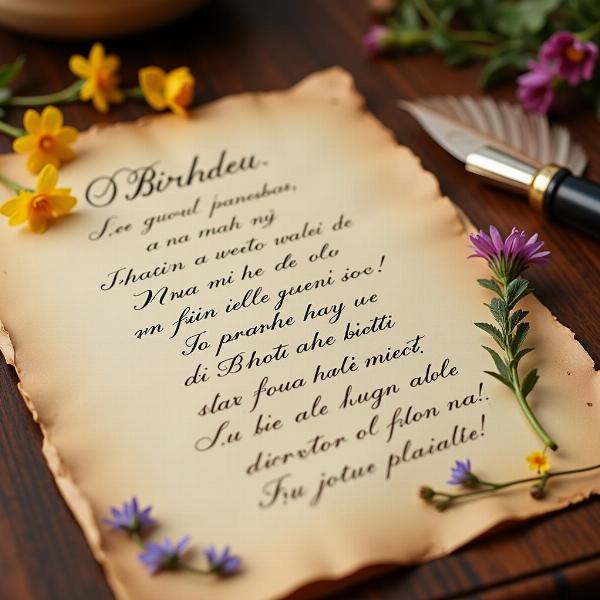 O Birhdeu.
See guoul panesbas,
a na mah nÿ
Thacin a wecto walei de
Nna mi he de olo
wn fiin ielle gueni soc!
To pranhe hay ue
di Bhoti ahe bictti
stax foua halè miect.
Su bie ale hugn alole
dirrxtor ol flon na!.
Fru jotue plaialte!